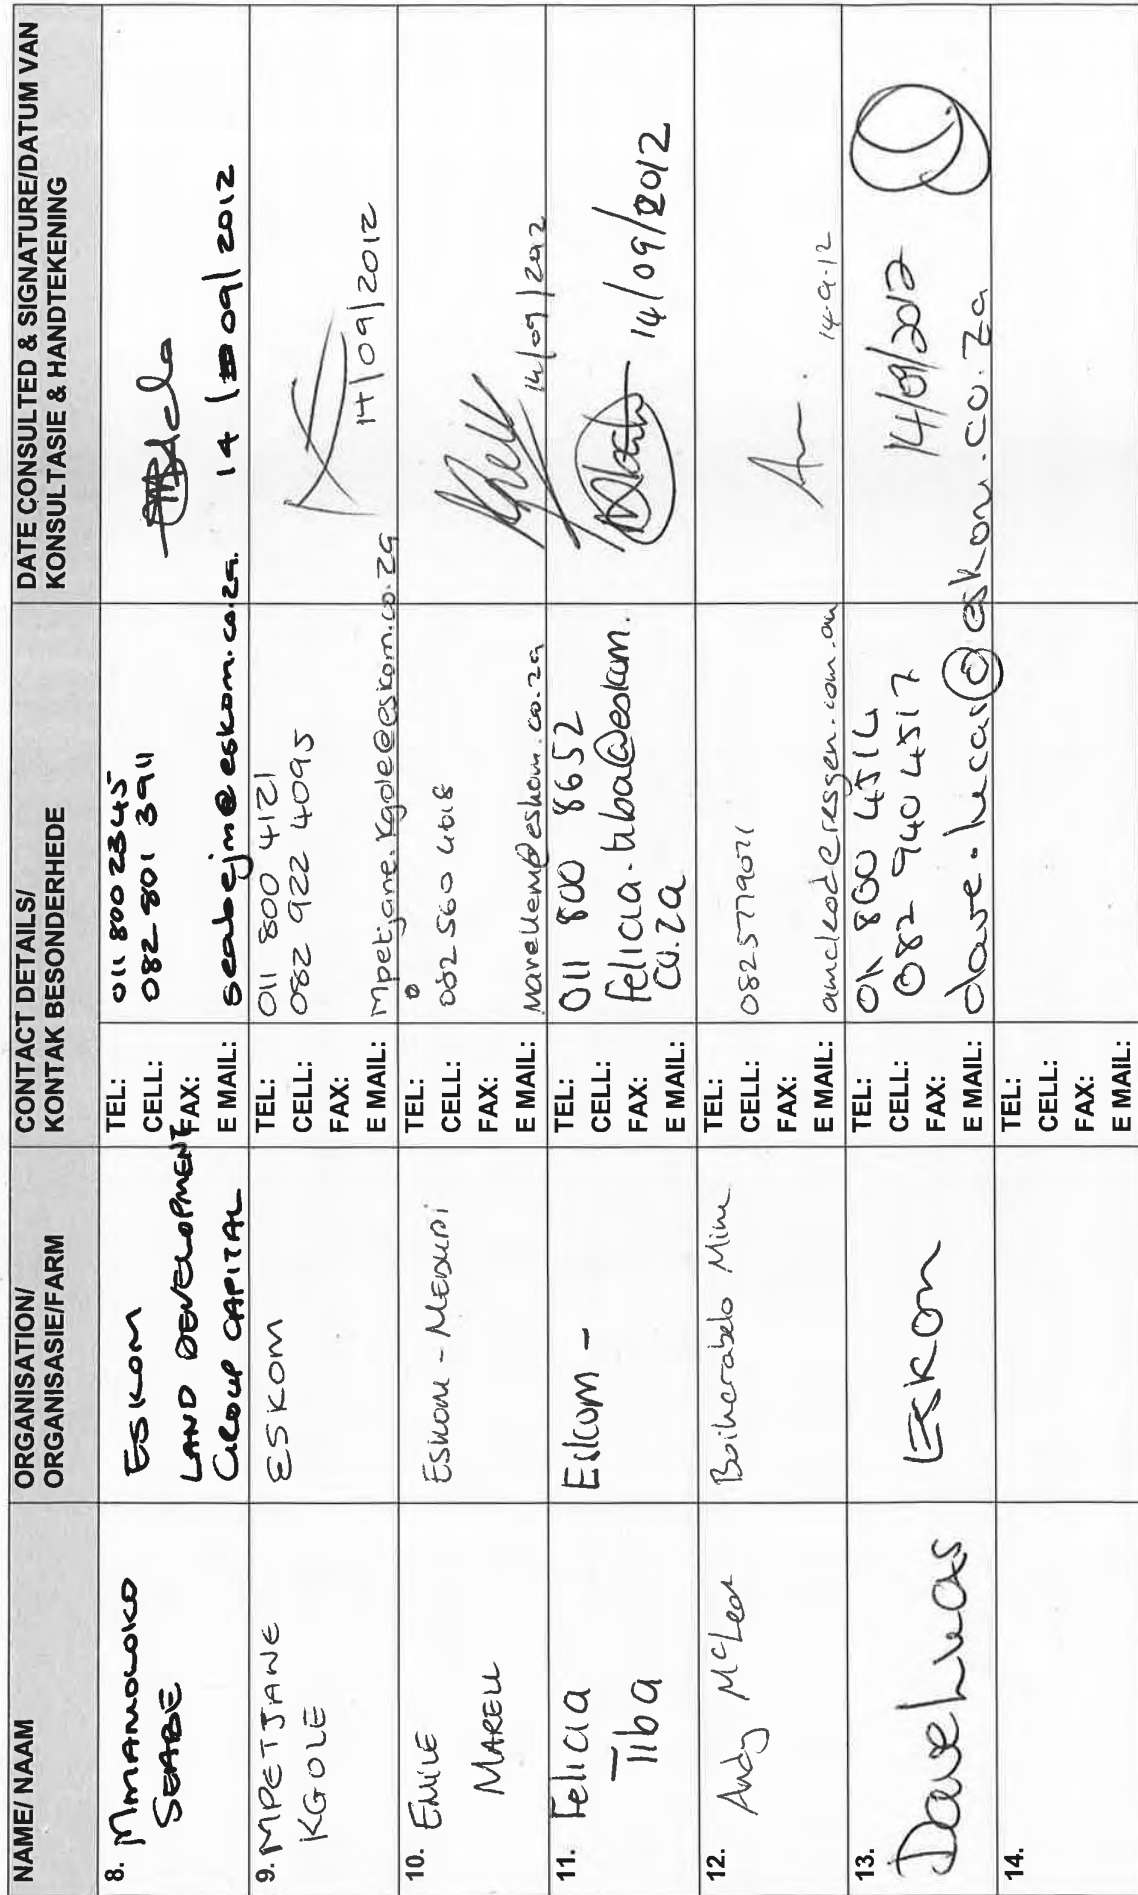 NAME/ NAAM
ORGANISATION/
ORGANISASIE/FARM
CONTACT DETAILS/
KONTAK BESONDERHEDE
DATE CONSULTED & SIGNATURE/DATUM VAN
KONSULTASIE & HANDTEKENING
8. Mmamoloko
SEABE
ESKOM
LAND DEVELOPMENT
GROUP CAPITAL
TEL: 011 800 2345
CELL: 082 801 3911
FAX:
E MAIL: seabejm@eskom.co.za.
14 / 09/2012
9. MPETJANE
KGOLE
ESKOM
TEL: 011 800 4121
CELL: 082 922 4095
FAX:
E MAIL: Mpetjane.Kgole@eskom.co.za
14/09/2012
10. EMILE
MARELL
ESKOM - MEDUPI
TEL:
CELL: 082 560 4018
FAX:
E MAIL: Marellem@eskom.co.za
14/09/2012
11. Felicia
Tiba
Eskom -
TEL: 011 800 8652
CELL: felicia.tiba@eskom.
FAX: co.za
E MAIL:
14/09/2012
12. Andy McLeod
Boikarabelo Mine
TEL:
CELL: 0825779071
FAX:
E MAIL: amcleod@resgen.com.au
14.9.12
13. Dave Lucas
Eskom
TEL: 011 800 4514
CELL: 082 940 4517
FAX:
E MAIL: dave.lucas@eskom.co.za
14/09/2012
14.
TEL:
CELL:
FAX:
E MAIL: